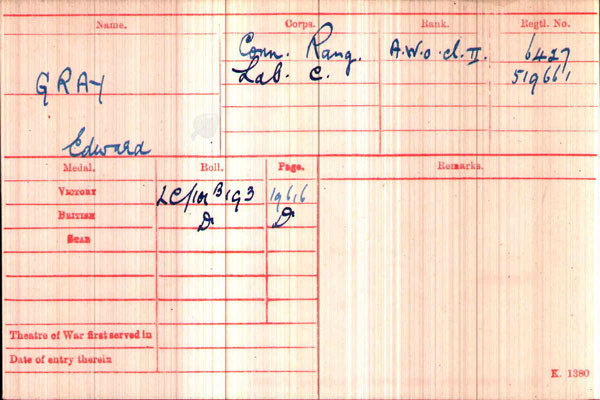 Name. Corps. Rank. Regtl. No.
Conn. Rang. A.W.O.cl.II. 6427
GRAY Lab. C. 519661
Edward
Medal. Roll. Page. Remarks.
VICTORY LC/101 B193 19616
BRITISH Do Do
STAR
Theatre of War first served in
Date of entry therein
K. 1380